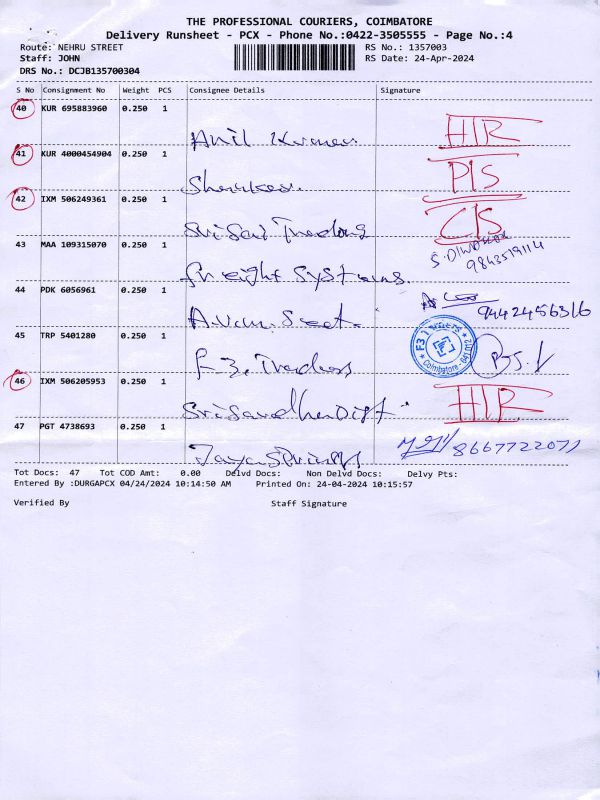 THE PROFESSIONAL COURIERS, COIMBATORE
Delivery Runsheet - PCX - Phone No.:0422-3505555 - Page No.:4
Route: NEHRU STREET RS No.: 1357003
Staff: JOHN RS Date: 24-Apr-2024
DRS No.: DCJB135700304
S No Consignment No Weight PCS Consignee Details Signature
40 KUR 695883960 0.250 1
Anil Kumar HIR
41 KUR 4000454904 0.250 1
P/S
42 IXM 506249361 0.250 1
Sri Sai Trading C/S
43 MAA 109315070 0.250 1
Freight Systems. 9843519114
44 PDK 6056961 0.250 1
9442456316
45 TRP 5401280 0.250 1
F3. Traders
46 IXM 506205953 0.250 1
HIR
47 PGT 4738693 0.250 1
8667722071
Tot Docs: 47 Tot COD Amt: 0.00 Delvd Docs: Non Delvd Docs: Delvy Pts:
Entered By :DURGAPCX 04/24/2024 10:14:50 AM Printed On: 24-04-2024 10:15:57
Verified By Staff Signature